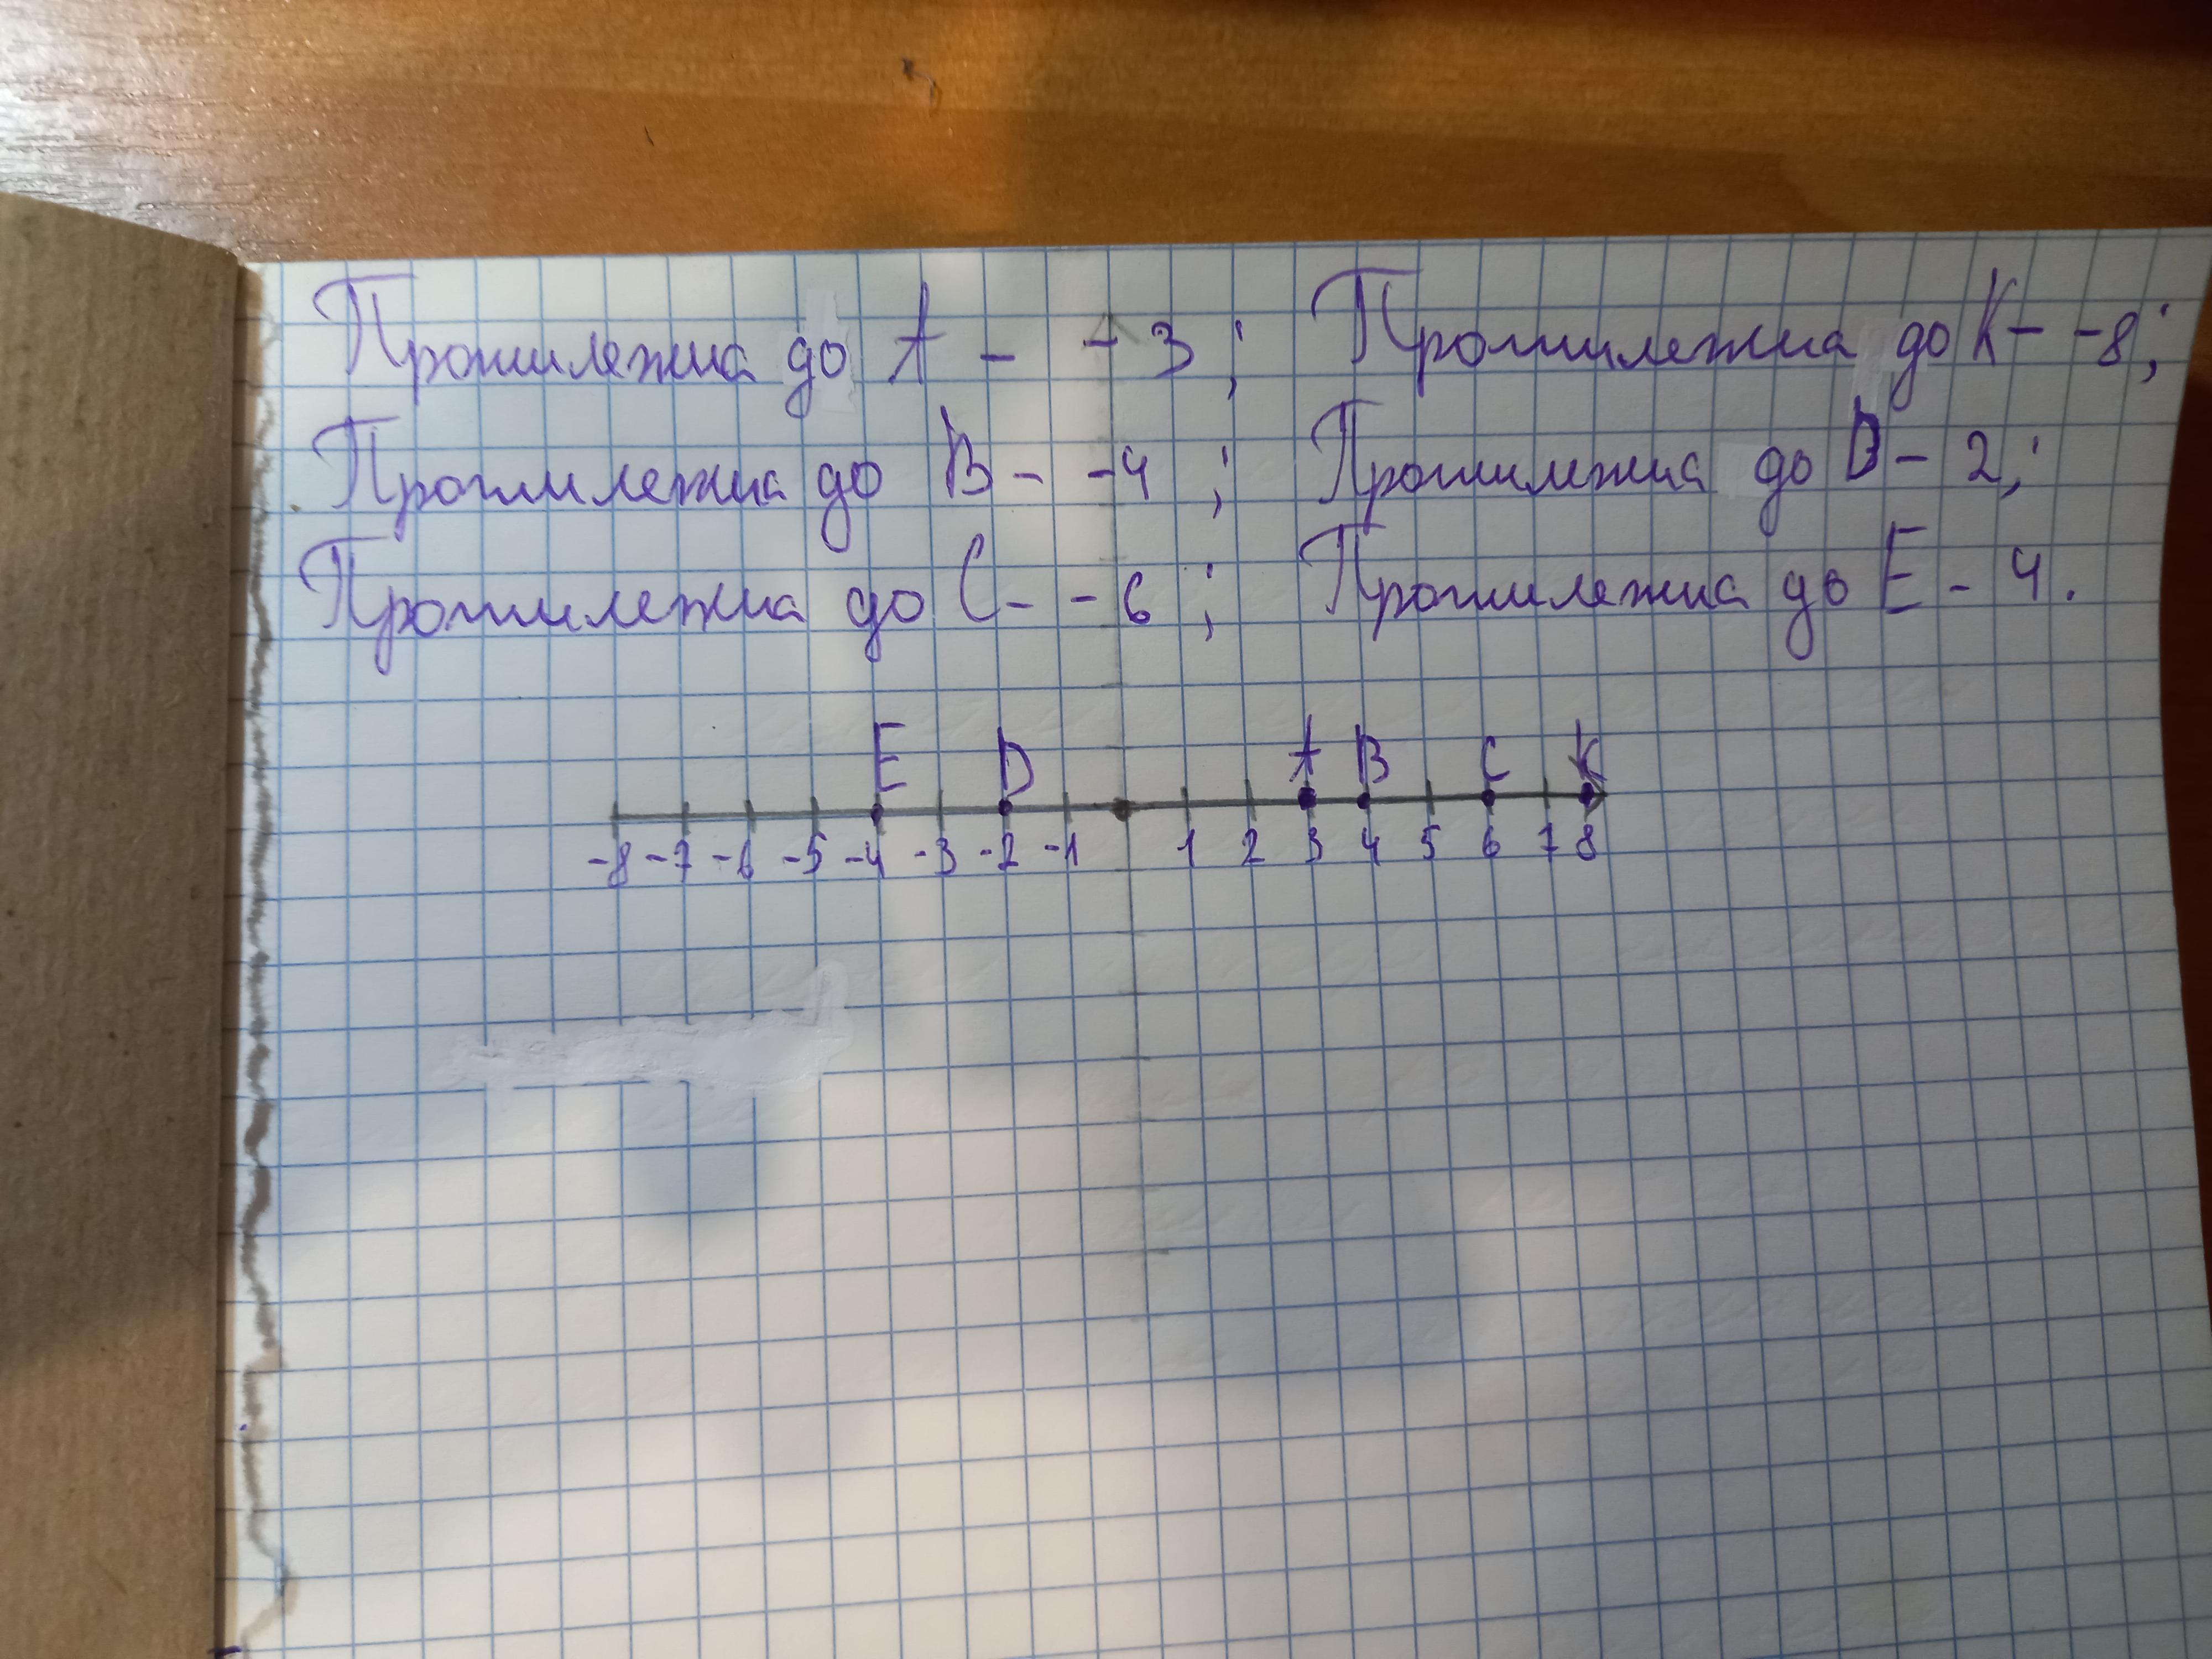 Протилежна до А - -3; Протилежна до К - -8;
Протилежна до В - -4; Протилежна до D - 2;
Протилежна до С - -6; Протилежна до Е - 4.
E D A B C K
-8 -7 -6 -5 -4 -3 -2 -1 1 2 3 4 5 6 7 8